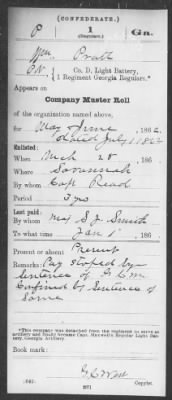 (CONFEDERATE.)
P 1 Ga.
(Regulars.)
Wm. Pratt
Pvt., Co. D, Light Battery,
1 Regiment Georgia Regulars.*
Appears on
Company Muster Roll
of the organization named above,
for May & June, 1862.
dated July 1 1862
Enlisted:
When Mch 28, 186
Where Savannah
By whom Capt Read
Period 3 yrs
Last paid:
By whom Maj S. J. Smith
To what time Jan 1, 186
Present or absent Present
Remarks: Pay stoped by
Sentence of G. C. M.
Confined by Sentence of
Same
*This company was detached from the regiment to serve as
artillery and finally became Capt. Maxwell's Regular Light Bat-
tery, Georgia Artillery.
Book mark:
(642) Copyist.